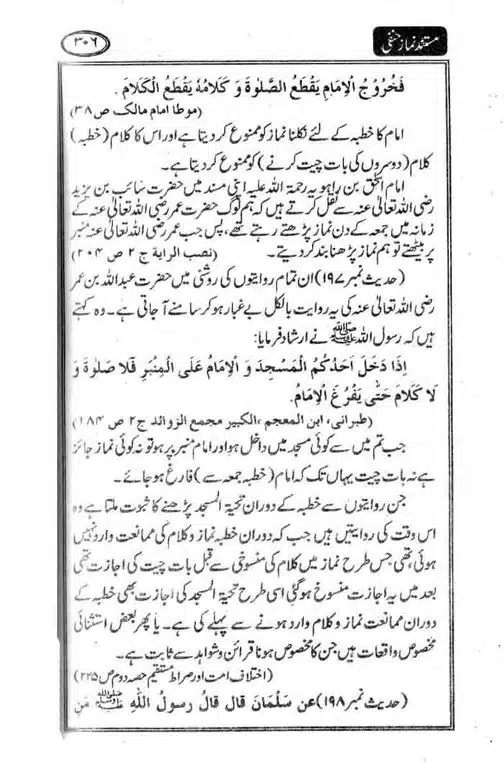 مستند نماز حنفی
۳۰۶
فَخُرُوْجُ الْاِمَامِ يَقْطَعُ الصَّلٰوةَ وَ كَلَامُهٗ يَقْطَعُ الْكَلَامَ.
(موطا امام مالک ص ۳۸)
امام کا خطبہ کے لئے نکلنا نماز کو ممنوع کر دیتا ہے اور اس کا کلام (خطبہ)
کلام (دوسروں کی بات چیت کرنے) کو ممنوع کر دیتا ہے۔
امام اسحٰق بن راہویہ رحمۃ اللہ علیہ اپنی مسند میں حضرت سائب بن یزید
رضی اللہ تعالیٰ عنہ سے نقل کرتے ہیں کہ ہم لوگ حضرت عمر رضی اللہ تعالیٰ عنہ کے
زمانہ میں جمعہ کے دن نماز پڑھتے رہتے تھے، پس جب عمر رضی اللہ تعالیٰ عنہ منبر
پر بیٹھتے تو ہم نماز پڑھنا بند کر دیتے۔ (نصب الرایة ج ۲ ص ۲۰۴)
(حدیث نمبر ۱۹۷) ان تمام روایتوں کی روشنی میں حضرت عبداللہ بن عمر
رضی اللہ تعالیٰ عنہ کی یہ روایت بالکل بے غبار ہو کر سامنے آ جاتی ہے۔ وہ کہتے
ہیں کہ رسول اللہ ﷺ نے ارشاد فرمایا:
اِذَا دَخَلَ اَحَدُكُمُ الْمَسْجِدَ وَ الْاِمَامُ عَلَى الْمِنْبَرِ فَلَا صَلٰوةَ وَ
لَا كَلَامَ حَتّٰى يَفْرُغَ الْاِمَامُ.
(طبرانی، ابن المعجم ،الکبیر مجمع الزوائد ج۲ ص ۱۸۴)
جب تم میں سے کوئی مسجد میں داخل ہو اور امام منبر پر ہو تو نہ کوئی نماز جائز
ہے نہ بات چیت یہاں تک کہ امام (خطبہ جمعہ سے) فارغ ہو جائے۔
جن روایتوں سے خطبہ کے دوران تحیۃ المسجد پڑھنے کا ثبوت ملتا ہے وہ
اس وقت کی روایتیں ہیں جب کہ دوران خطبہ نماز و کلام کی ممانعت وارد نہیں
ہوئی تھی جس طرح نماز میں کلام کی منسوخی سے قبل بات چیت کی اجازت تھی
بعد میں یہ اجازت منسوخ ہو گئی اسی طرح تحیۃ المسجد کی اجازت بھی خطبہ کے
دوران ممانعت نماز و کلام وارد ہونے سے پہلے کی ہے۔ یا پھر بعض استثنائی
مخصوص واقعات ہیں جن کا مخصوص ہونا قرائن و شواہد سے ثابت ہے۔
(اختلاف امت اور صراط مستقیم حصہ دوم ص ۲۲۵)
(حدیث نمبر ۱۹۸) عن سَلْمَانَ قال قالُ رسولُ اللّٰهِ ﷺ مَن